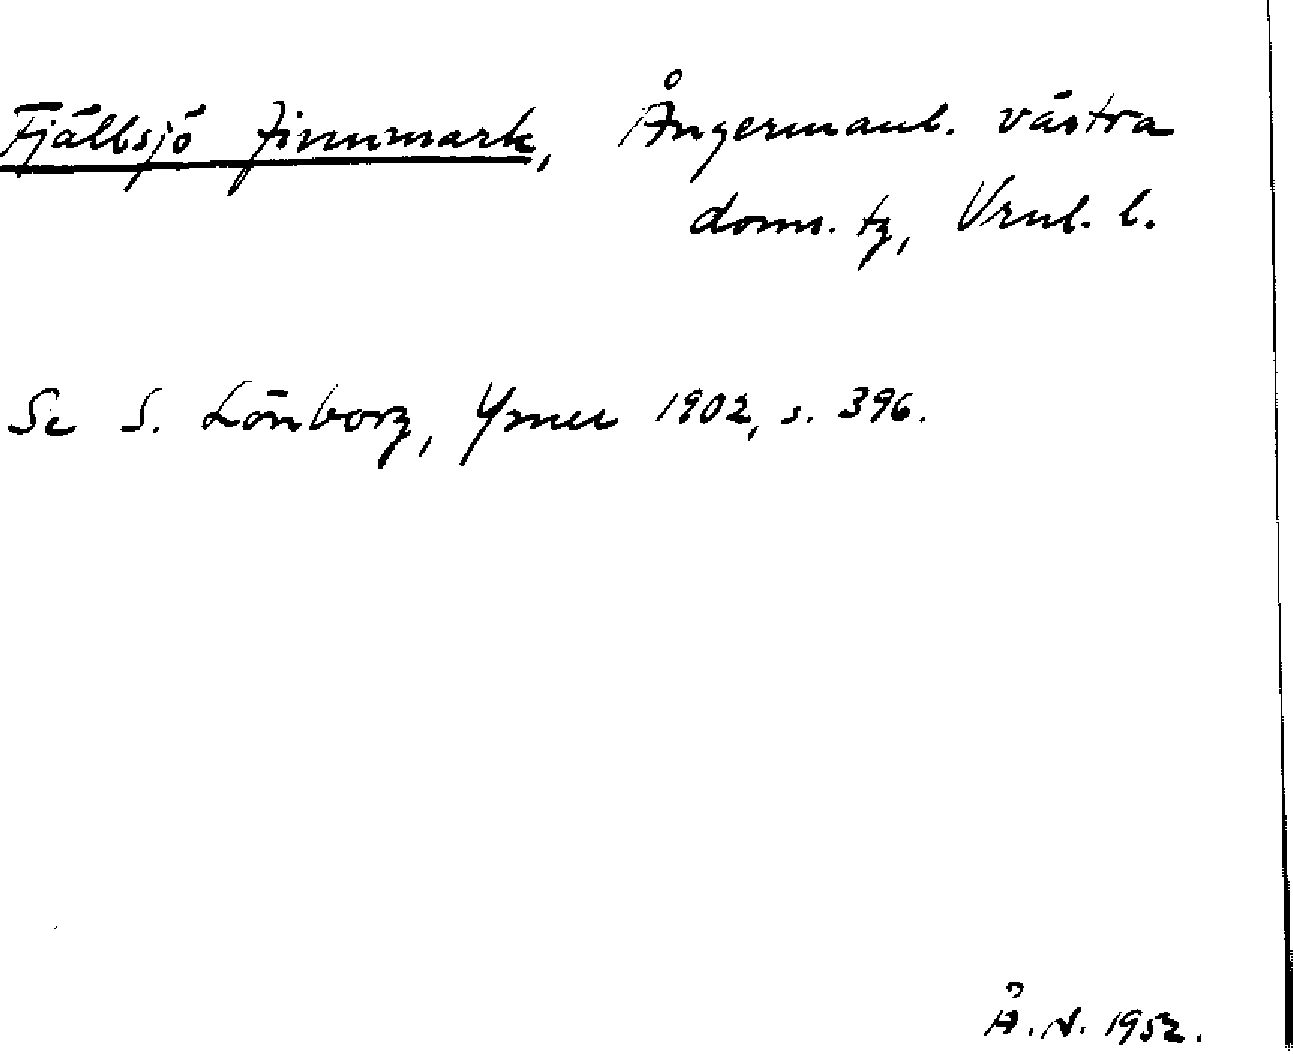 Fjällsjö finnmark, Ångermanl. västra
doms. tg, Vrnl. l.
Se S. Lönborg, Ymer 1902, s. 396.
Å. N. 1952.